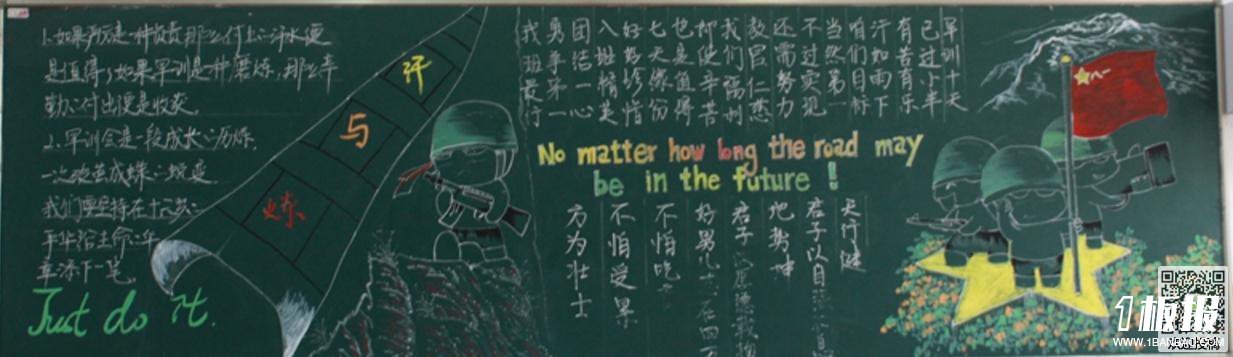 1.如果
是一种
那么付出心汗水便
是值得,如果军训是一种磨炼,那么辛
勤心付出便是收获.
2.军训会是一段成长心历炼.
一次破茧成蝶心蜕变
我们要坚持在十六岁心
年华给生命心年
添下一笔.
Just do it.
汗
与
炼
军训十天
已过小半
有苦有乐
汗如雨下
咱们目标
当然第一
不过实现
还需努力
教官仁慈
我们福利
即使辛苦
也是值得
七天缘份
好好珍惜
入班精英
团结一心
勇争第一
我班最行
No matter how long the road may
be in the future !
天行健
君子以自
地势坤
君子
好男儿
在四
不怕吃
不怕受累
方为壮士
八一
1板报
WWW.1BANBAO.COM